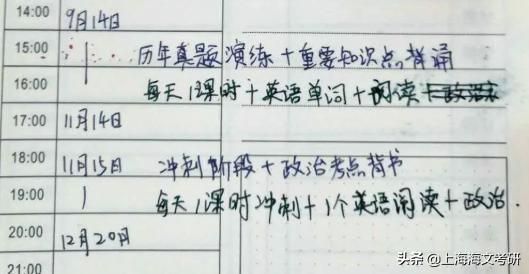 14:00 9月14日
15:00 历年真题演练+重要知识点背诵
16:00 每天1课时+英语单词+阅读
17:00 11月14日
18:00 11月15日 冲刺阶段+政治考点背书
19:00 每天1课时冲刺+1个英语阅读+政治.
20:00 12月20日
21:00
头条 @上海海文考研